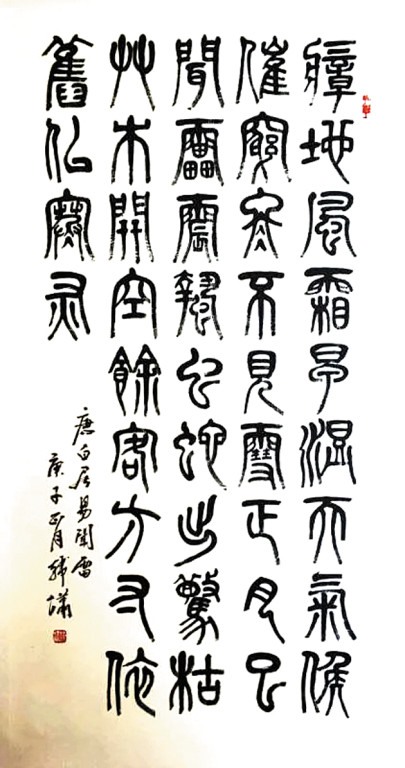 瘴地風霜早溫天氣候
催窮冬不見雪正月已
聞雷震蟄虫蛇出驚枯
艸木開空餘客方寸依
舊似寒灰
唐白居易聞雷
庚子正月